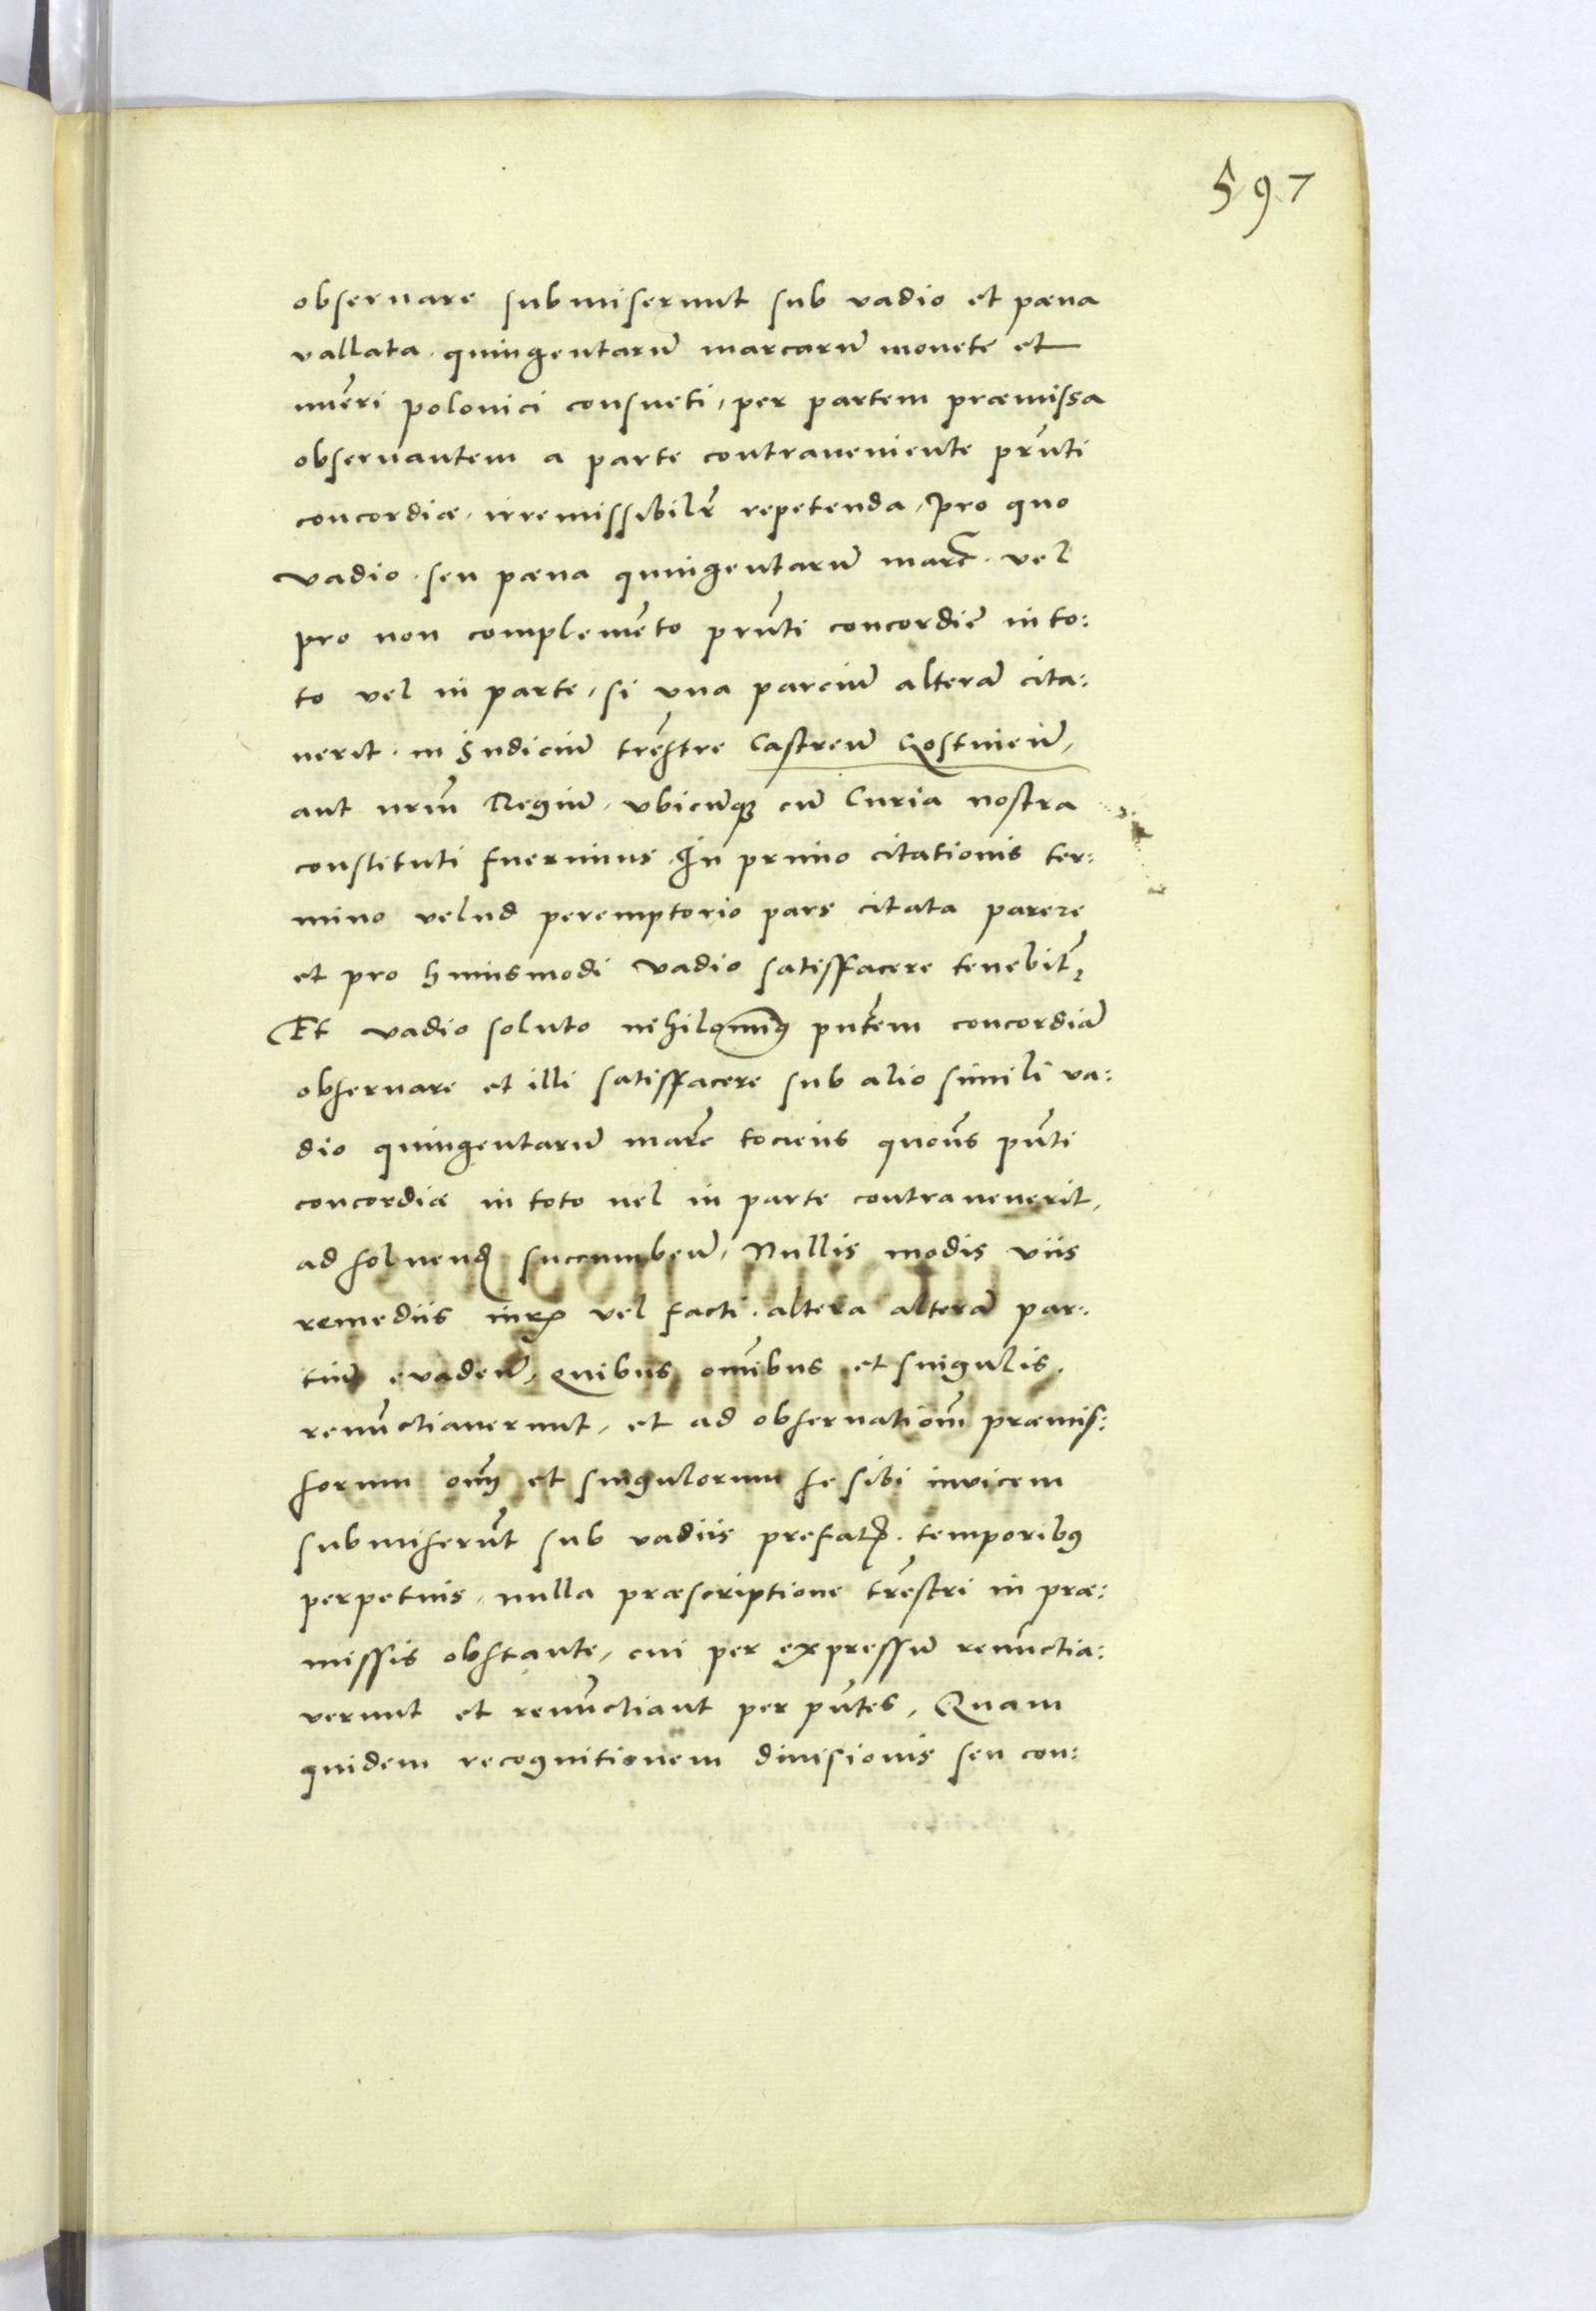 597
obseruare submiserunt sub vadio et pæna
vallata quingentarũ marcarũ monete et
nũeri polonici consueti, per partem præmissa
obseruantem a parte contraueniente pñti
concordiæ, irremissibilr̃ repetenda, Pro quo
vadio seu pæna quingentarũ marc̃. vel
pro non complemẽto pñti concordiẽ in to:
to vel in parte, si vna parciũ alterã cita:
uerit in Iudiciũ trẽstre Castreñ Gostineñ,
aut nrũm Regiũ, vbicũq₃ cũ Curia nostra
constituti fuerimus. In primo citationis ter:
mino velud peremptorio pars citata parere
et pro huiusmodi vadio satisfacere tenebit̃
Et vadio soluto nihilomiñꝯ pñtem concordiã
obseruare et illi satisfacere sub alio simili va:
dio quingentarũ marc̃ tociens quotiẽs pñti
concordiæ in toto uel in parte contrauenerit,
ad soluend succumbeñ, Nullis modis viis
remediis iurꝭ vel facti altera alterã par:
tiũ euadeñ, Quibus om̃ibus et singulis
renũctiauerunt, et ad obseruatioñm præmis:
sorum om̃ et singulorum se sibi inuicem
submiserũt sub vadiis prefatꝭ. temporibꝯ
perpetuis, nulla præscriptione trẽstri in præ:
missis obstante, cui per expressũ renũctia:
verunt et renũctiant per pñtes, Quam
quidem recognitionem diuisionis seu con: